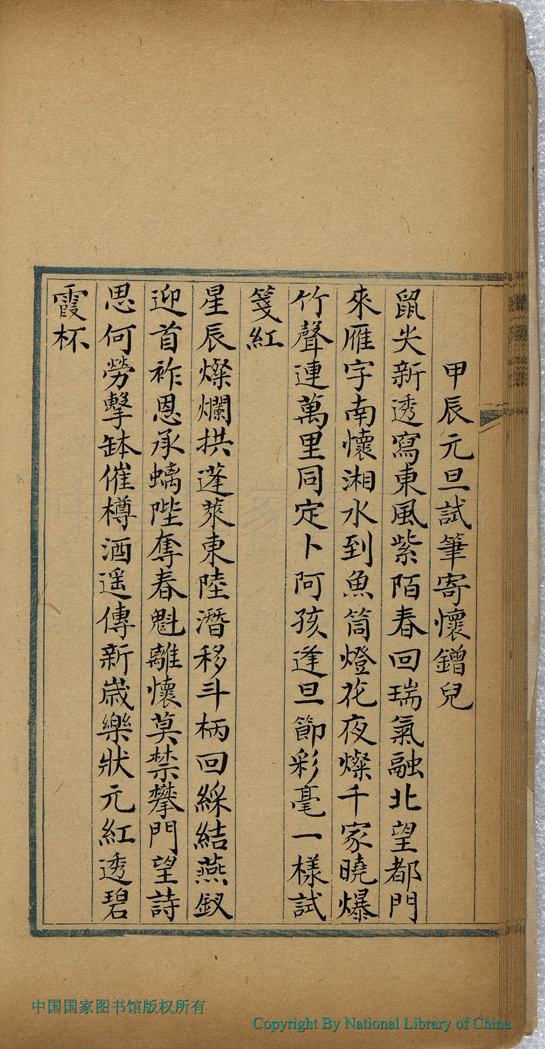 甲辰元旦試筆寄懷鐕兒
鼠尖新透寫東風紫陌春回瑞氣融北望都門
來雁字南懷湘水到魚筒燈花夜燦千家曉爆
竹聲連萬里同定卜阿孩逢旦節彩毫一樣試
箋紅
星辰燦爛拱蓬萊東陸潛移斗柄回綵結燕釵
迎首祚恩承螭陛奪春魁離懷莫禁攀門望詩
思何勞擊缽催樽酒遥傳新歲樂狀元紅透碧
霞杯
中国国家图书馆版权所有
Copyright By National Library of China